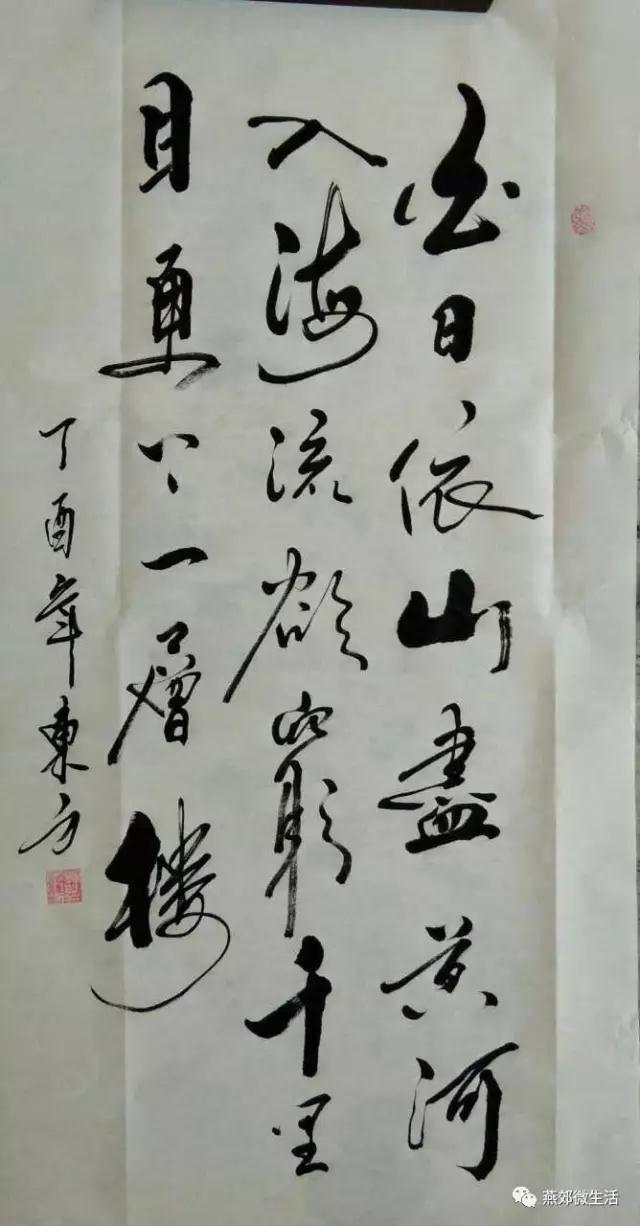 白日依山盡黃河
入海流欲窮千里
目更上一層樓
丁酉年東方
燕郊微生活